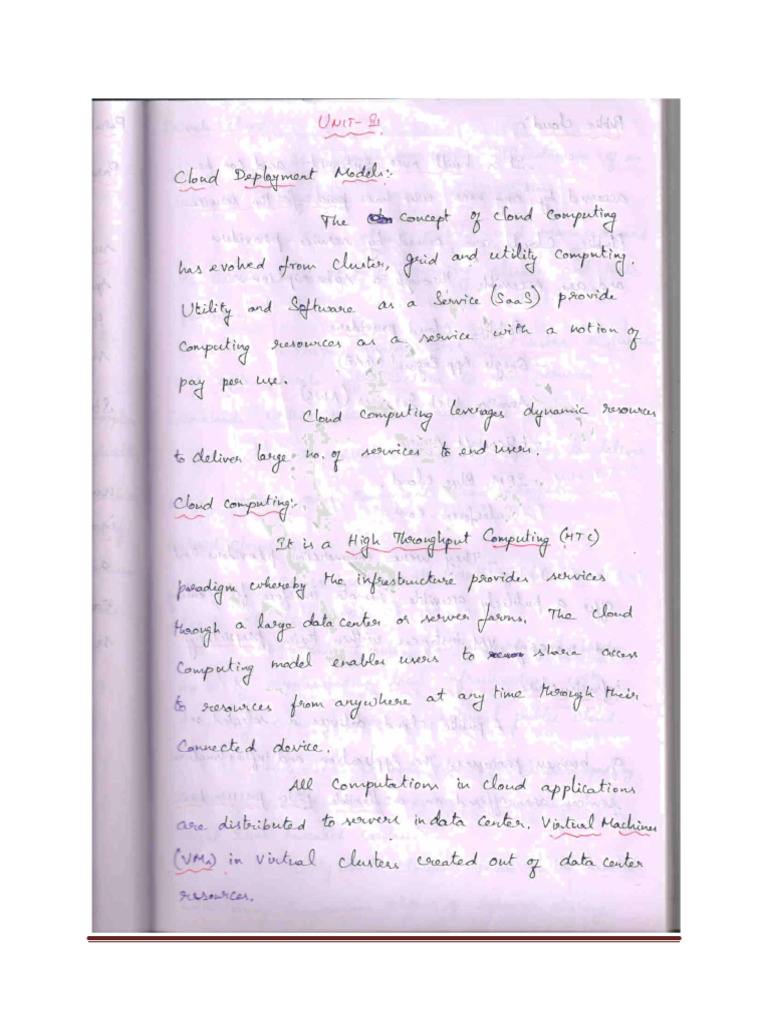 UNIT-II
Cloud Deployment Models:-
The concept of cloud computing
has evolved from cluster, grid and utility computing.
Utility and Software as a Service (SaaS) provide
computing resources as a service with a notion of
pay per use.
Cloud computing leverages dynamic resources
to deliver large no. of services to end users.
Cloud computing:-
It is a High Throughput Computing (HTC)
paradigm whereby the infrastructure provides services
through a large data center or server farms. The cloud
Computing model enables users to share access
to resources from anywhere at any time through their
Connected device.
All computations in cloud applications
are distributed to servers in data center. Virtual Machines
(VMs) in virtual clusters created out of data center
resources.